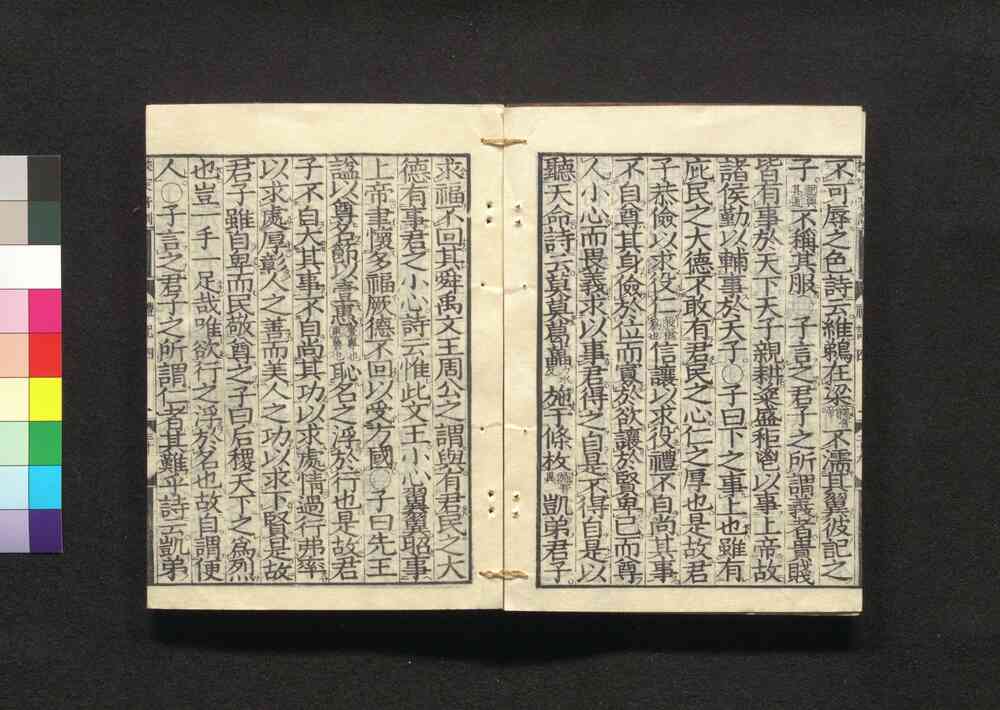 不可辱之色詩云維鵜在梁不濡其翼彼記之
子不稱其服〇子言之君子之所謂義者貴賤
皆有事於天下天子親耕粢盛秬鬯以事上帝故
諸侯勤以輔事於天子〇子曰下之事上也雖有
庇民之大德不敢有君民之心仁之厚也是故君
子恭儉以求役仁信讓以求役禮不自尚其事
不自尊其身儉於位而寡於欲讓於賢卑己而尊
人小心而畏義求以事君得之自是不得自是以
聽天命詩云莫莫葛藟施于條枚凱弟君子
求福不回其舜禹文王周公之謂與有君民之大
德有事君之小心詩云惟此文王小心翼翼昭事
上帝聿懷多福厥德不回以受方國〇子曰先王
謚以尊名節以壹惠恥名之浮於行也是故君
子不自大其事不自尚其功以求處情過行弗率
以求處厚彰人之善而美人之功以求下賢是故
君子雖自卑而民敬尊之子曰后稷天下之爲烈
也豈一手一足哉唯欲行之浮於名也故自謂便
人〇子言之君子之所謂仁者其難乎詩云凱弟